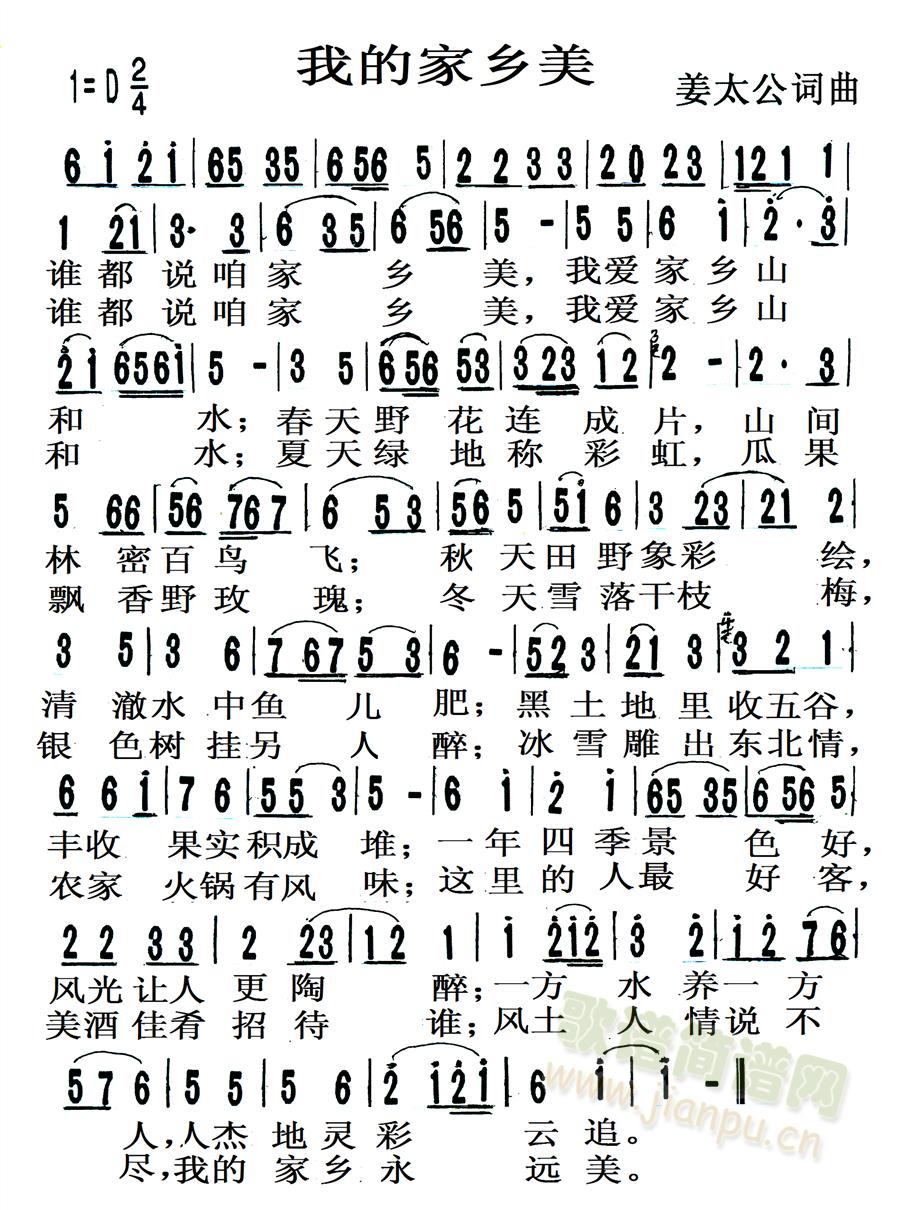 我的家乡美
1=D 2/4
姜太公词曲
6 i 2i | 65 35 | 656 5 | 22 33 | 20 23 | 121 1 |
1 21 | 3· 3 | 6 35 | 6 56 | 5 - | 5 5 | 6 i | 2· 3 |
谁都说咱家乡美，我爱家乡山
谁都说咱家乡美，我爱家乡山
2i 656i | 5 - | 3 5 | 656 53 | 323 12 | 2 - | 2· 3 |
和水；春天野花连成片，山间
和水；夏天绿地称彩虹，瓜果
5 66 | 56 767 | 6 53 | 56 5 | 5i 6 | 3 23 | 21 2 |
林密百鸟飞；秋天田野象彩绘，
飘香野玫瑰；冬天雪落干枝梅，
3 5 | 3 6 | 767 53 | 6 - | 523 | 21 3 | 3 2 1 |
清澈水中鱼儿肥；黑土地里收五谷，
银色树挂另人醉；冰雪雕出东北情，
6 6i | 76 | 55 3 | 5 - | 6 i | 2 i | 65 35 | 656 5 |
丰收果实积成堆；一年四季景色好，
农家火锅有风味；这里的人最好客，
22 33 | 2 23 | 12 1 | i 2i2 | 3 2 | 2i 76 |
风光让人更陶醉；一方水养一方
美酒佳肴招待谁；风土人情说不
57 6 | 5 5 | 5 6 | 2 i2i | 6 i | i - ‖
人，人杰地灵彩云追。
尽，我的家乡永远美。
歌谱简谱网
www.jianpu.cn